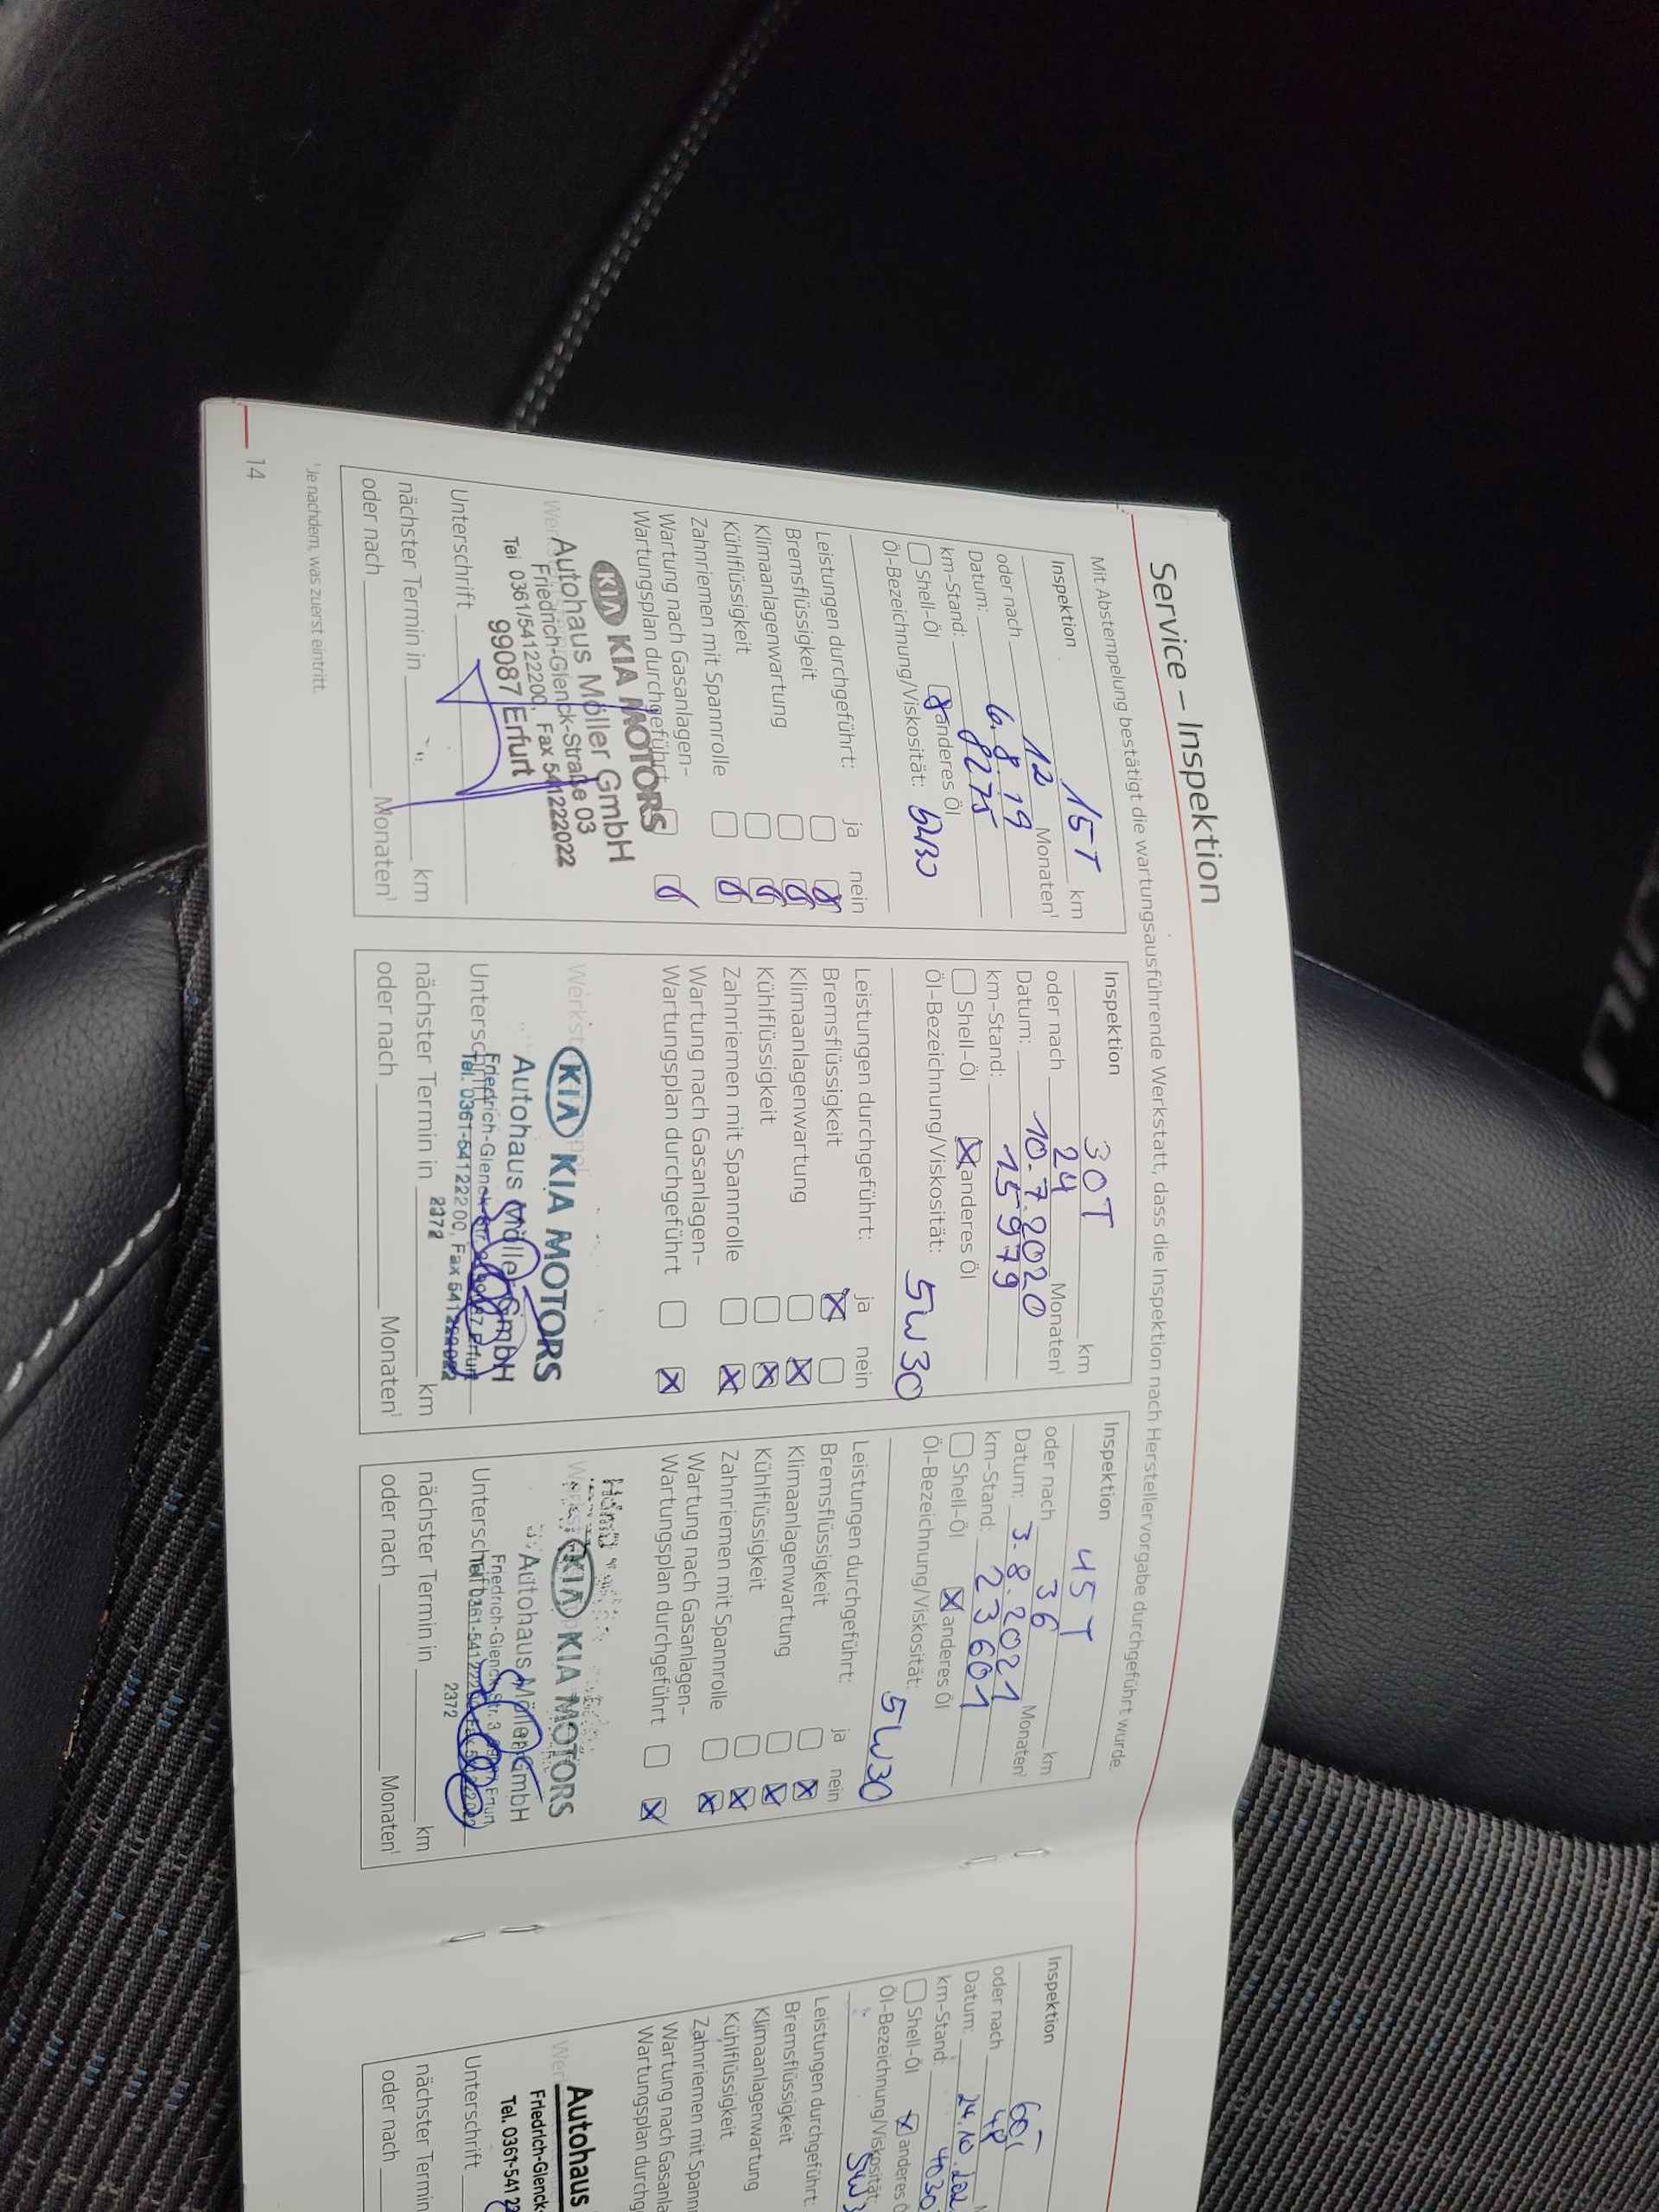 Service – Inspektion
Mit Abstempelung bestätigt die wartungsausführende Werkstatt, dass die Inspektion nach Herstellervorgabe durchgeführt wurde.
Inspektion
15T km
oder nach 12 Monaten¹
Datum: 6.8.19
km-Stand: 8275
Shell-Öl anderes Öl
Öl-Bezeichnung/Viskosität: 5W30
Leistungen durchgeführt: ja nein
Bremsflüssigkeit
Klimaanlagenwartung
Kühlflüssigkeit
Zahnriemen mit Spannrolle
Wartung nach Gasanlagen-
Wartungsplan durchgeführt
KIA KIA MOTORS
Autohaus Möller GmbH
Friedrich-Glenck-Straße 03
Tel 0361/5412200, Fax 541222022
99087 Erfurt
Unterschrift
nächster Termin in km
oder nach Monaten¹
Inspektion
30T km
oder nach 24 Monaten¹
Datum: 10.7.2020
km-Stand: 15979
Shell-Öl anderes Öl
Öl-Bezeichnung/Viskosität:
5W30
Leistungen durchgeführt: ja nein
Bremsflüssigkeit
Klimaanlagenwartung
Kühlflüssigkeit
Zahnriemen mit Spannrolle
Wartung nach Gasanlagen-
Wartungsplan durchgeführt
KIA KIA MOTORS
Autohaus Möller GmbH
Friedrich-Glenck-Str. Erfurt
Tel. 0361-54122200, Fax
2372
nächster Termin in km
oder nach Monaten¹
Inspektion
45T km
oder nach 36 Monaten¹
Datum: 3.8.2021
km-Stand: 23601
Shell-Öl anderes Öl
Öl-Bezeichnung/Viskosität:
5W30
Leistungen durchgeführt: ja nein
Bremsflüssigkeit
Klimaanlagenwartung
Kühlflüssigkeit
Zahnriemen mit Spannrolle
Wartung nach Gasanlagen-
Wartungsplan durchgeführt
KIA KIA MOTORS
Autohaus Möller GmbH
Friedrich-Glenck-Str. 3
2372
nächster Termin in km
oder nach Monaten¹
¹Je nachdem, was zuerst eintritt.
14
Inspektion
60T
oder nach 48
Datum: 24.10.202
km-Stand: 4030
Shell-Öl anderes Ö
Öl-Bezeichnung/Viskosität:
5W3
Leistungen durchgeführt:
Bremsflüssigkeit
Klimaanlagenwartung
Kühlflüssigkeit
Zahnriemen mit Spann
Wartung nach Gasanla
Wartungsplan durchg
Autohaus
Friedrich-Glenck-
Tel. 0361-541 22
Unterschrift
nächster Termin
oder nach